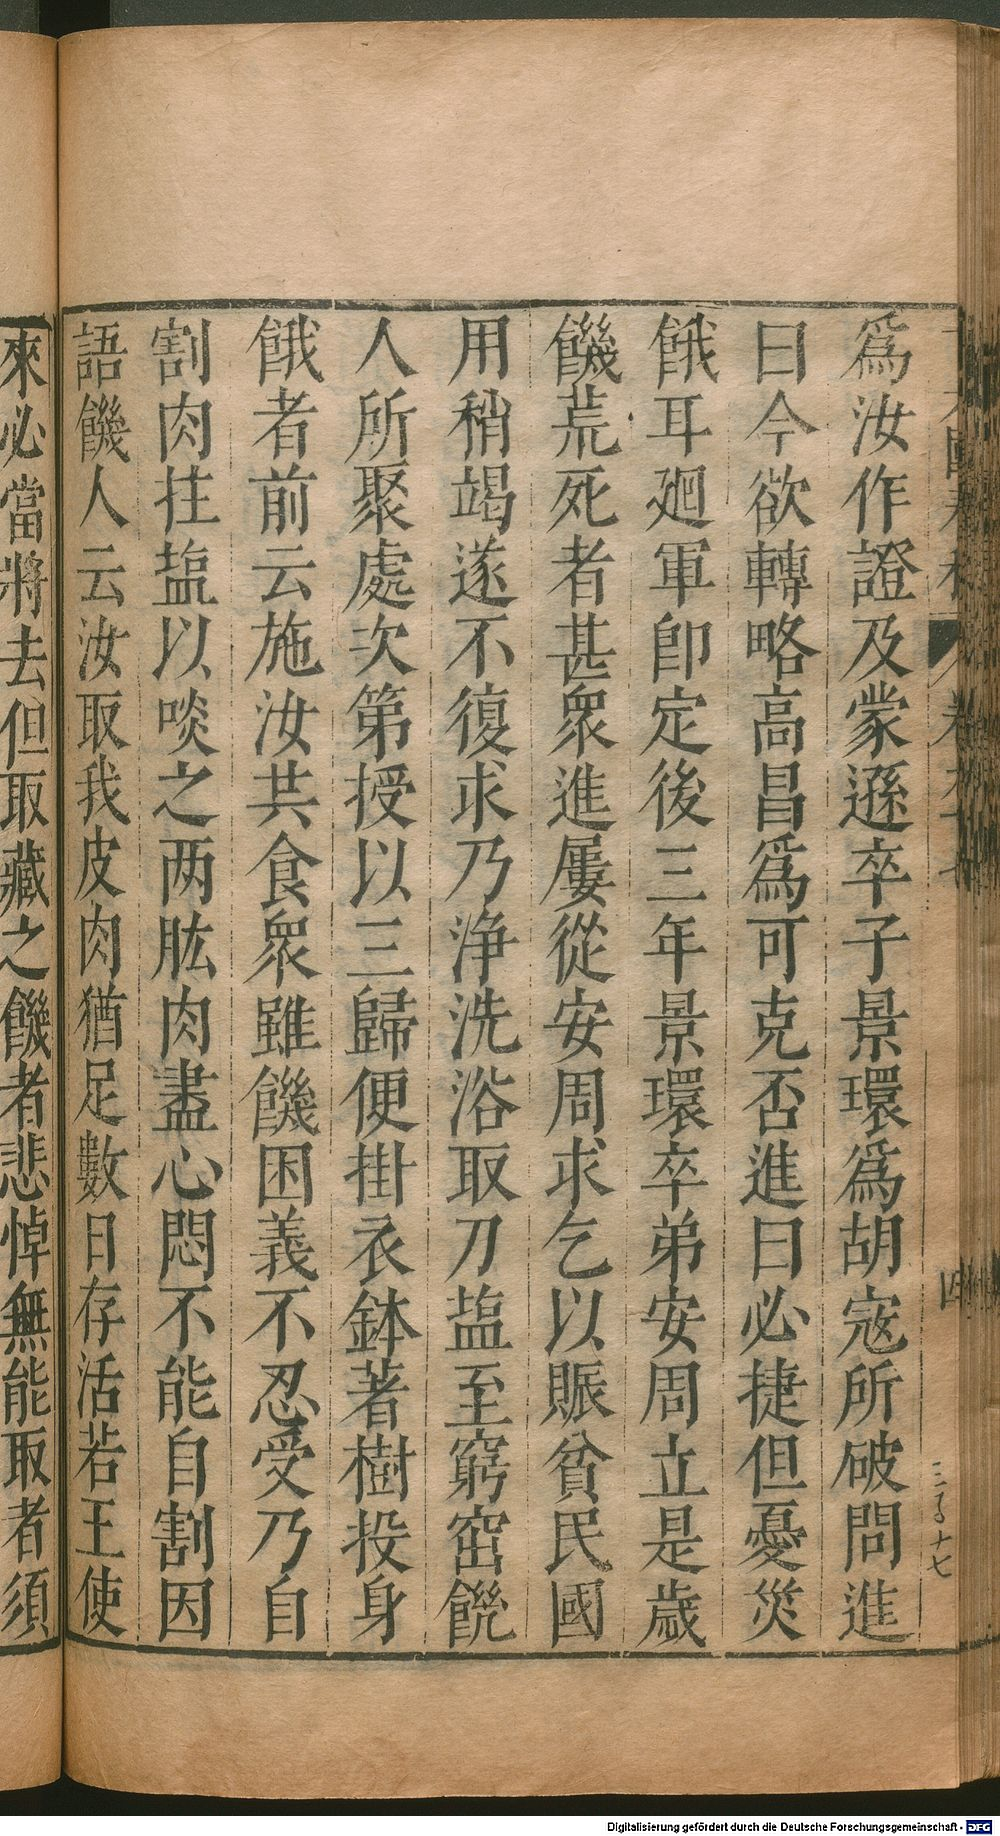 爲汝作證及蒙遜卒子景環爲胡寇所破問進
曰今欲轉略高昌爲可克否進曰必捷但憂災
餓耳廻軍卽定後三年景環卒弟安周立是歲
饑荒死者甚衆進屢從安周求乞以賑貧民國
用稍竭遂不復求乃浄洗浴取刀塩至窮窋饑
人所聚處次第授以三歸便掛衣鉢著樹投身
餓者前云施汝共食衆雖饑困義不忍受乃自
割肉拄塩以啖之两肱肉盡心悶不能自割因
語饑人云汝取我皮肉猶足數日存活若王使
來必當將去但取藏之饑者悲悼無能取者須
四
三百十七
Digitalisierung gefördert durch die Deutsche Forschungsgemeinschaft - DFG